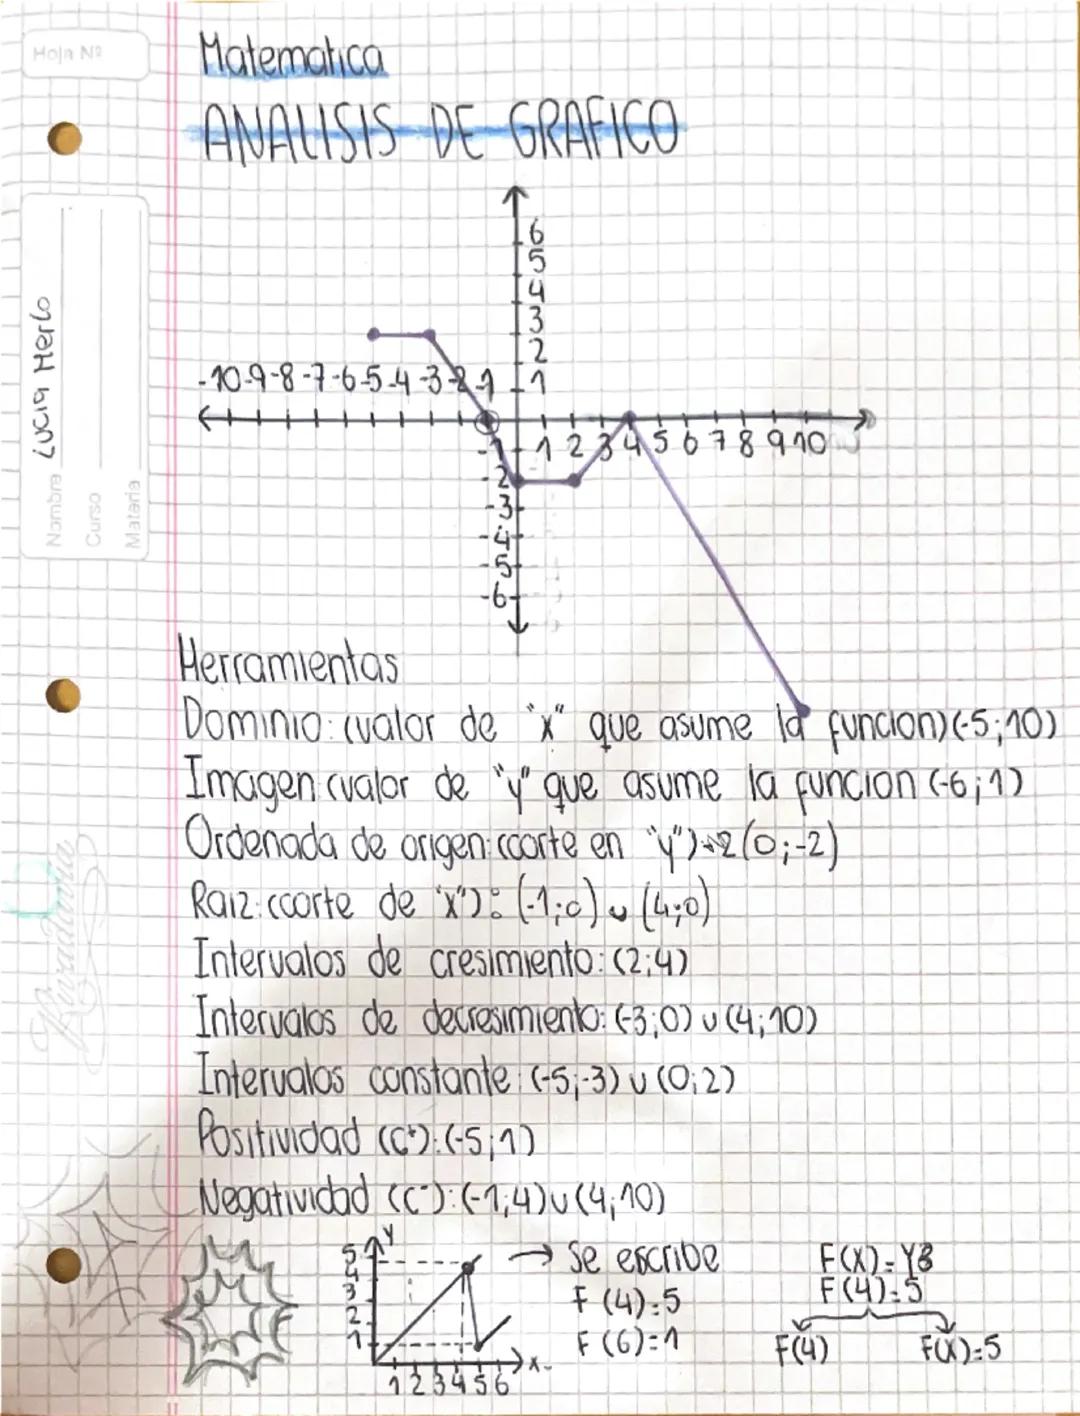 Hoja Nº
Matematica
ANALISIS DE GRAFICO
Nombre Lucia Merlo
Curso
Materia
6
5
4
3
2
1
-10-9-8-7-6-5-4-3-2-1
1 2 3 4 5 6 7 8 9 10
-1
-2
-3
-4
-5
-6
Herramientas
Dominio: (valor de "x" que asume la funcion) (-5;10)
Imagen (valor de "y" que asume la funcion (-6;1)
Ordenada de origen: (corte en "y") -2 (0;-2)
Raiz: (corte de "x"): (-1;0) u (4;0)
Intervalos de cresimiento: (2;4)
Intervalos de decresimiento: (-3;0) u (4;10)
Intervalos constante: (-5;-3) u (0;2)
Positividad (C+): (-5;1)
Negatividad (C-): (-1;4) u (4;10)
Rivadavia
y
5
4
3
2
1
1 2 3 4 5 6
x
→ Se escribe
F (4)=5
F (6)=1
F(X)=Y
F(4)=5
F(4) F(X)=5